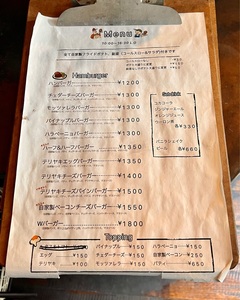 Menu
10:00~18:00 L.O
全て自家製フライドポテト、副菜(コールスローorサラダ)付きです
Hamburger
ハンバーガー ¥1200
チェダーチーズバーガー ¥1300
モッツァレラバーガー ¥1350
パイナップルバーガー ¥1350
ハラペーニョバーガー ¥1350
ハーフ&ハーフバーガー ¥1350
テリヤキエッグバーガー ¥1350
テリヤキチーズバーガー ¥1400
テリヤキチーズパインバーガー ¥1500
自家製ベーコンチーズバーガー ¥1550
Wバーガー ¥1800
Set drink
コカコーラ
ジンジャーエール
オレンジジュース
ウーロン茶
各¥330
バニラシェイク
ビール 各¥660
Topping
エッグ ¥150
テリヤキ ¥100
パイナップル ¥150
チェダーチーズ ¥150
モッツァレラ ¥150
ハラペーニョ ¥150
自家製ベーコン ¥250
パティ ¥650